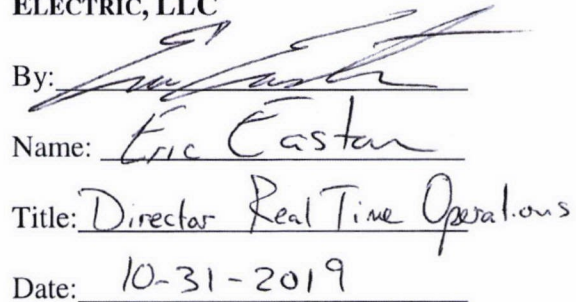 ELECTRIC, LLC
By: Eric Easton
Name: Eric Easton
Title: Director Real Time Operations
Date: 10-31-2019